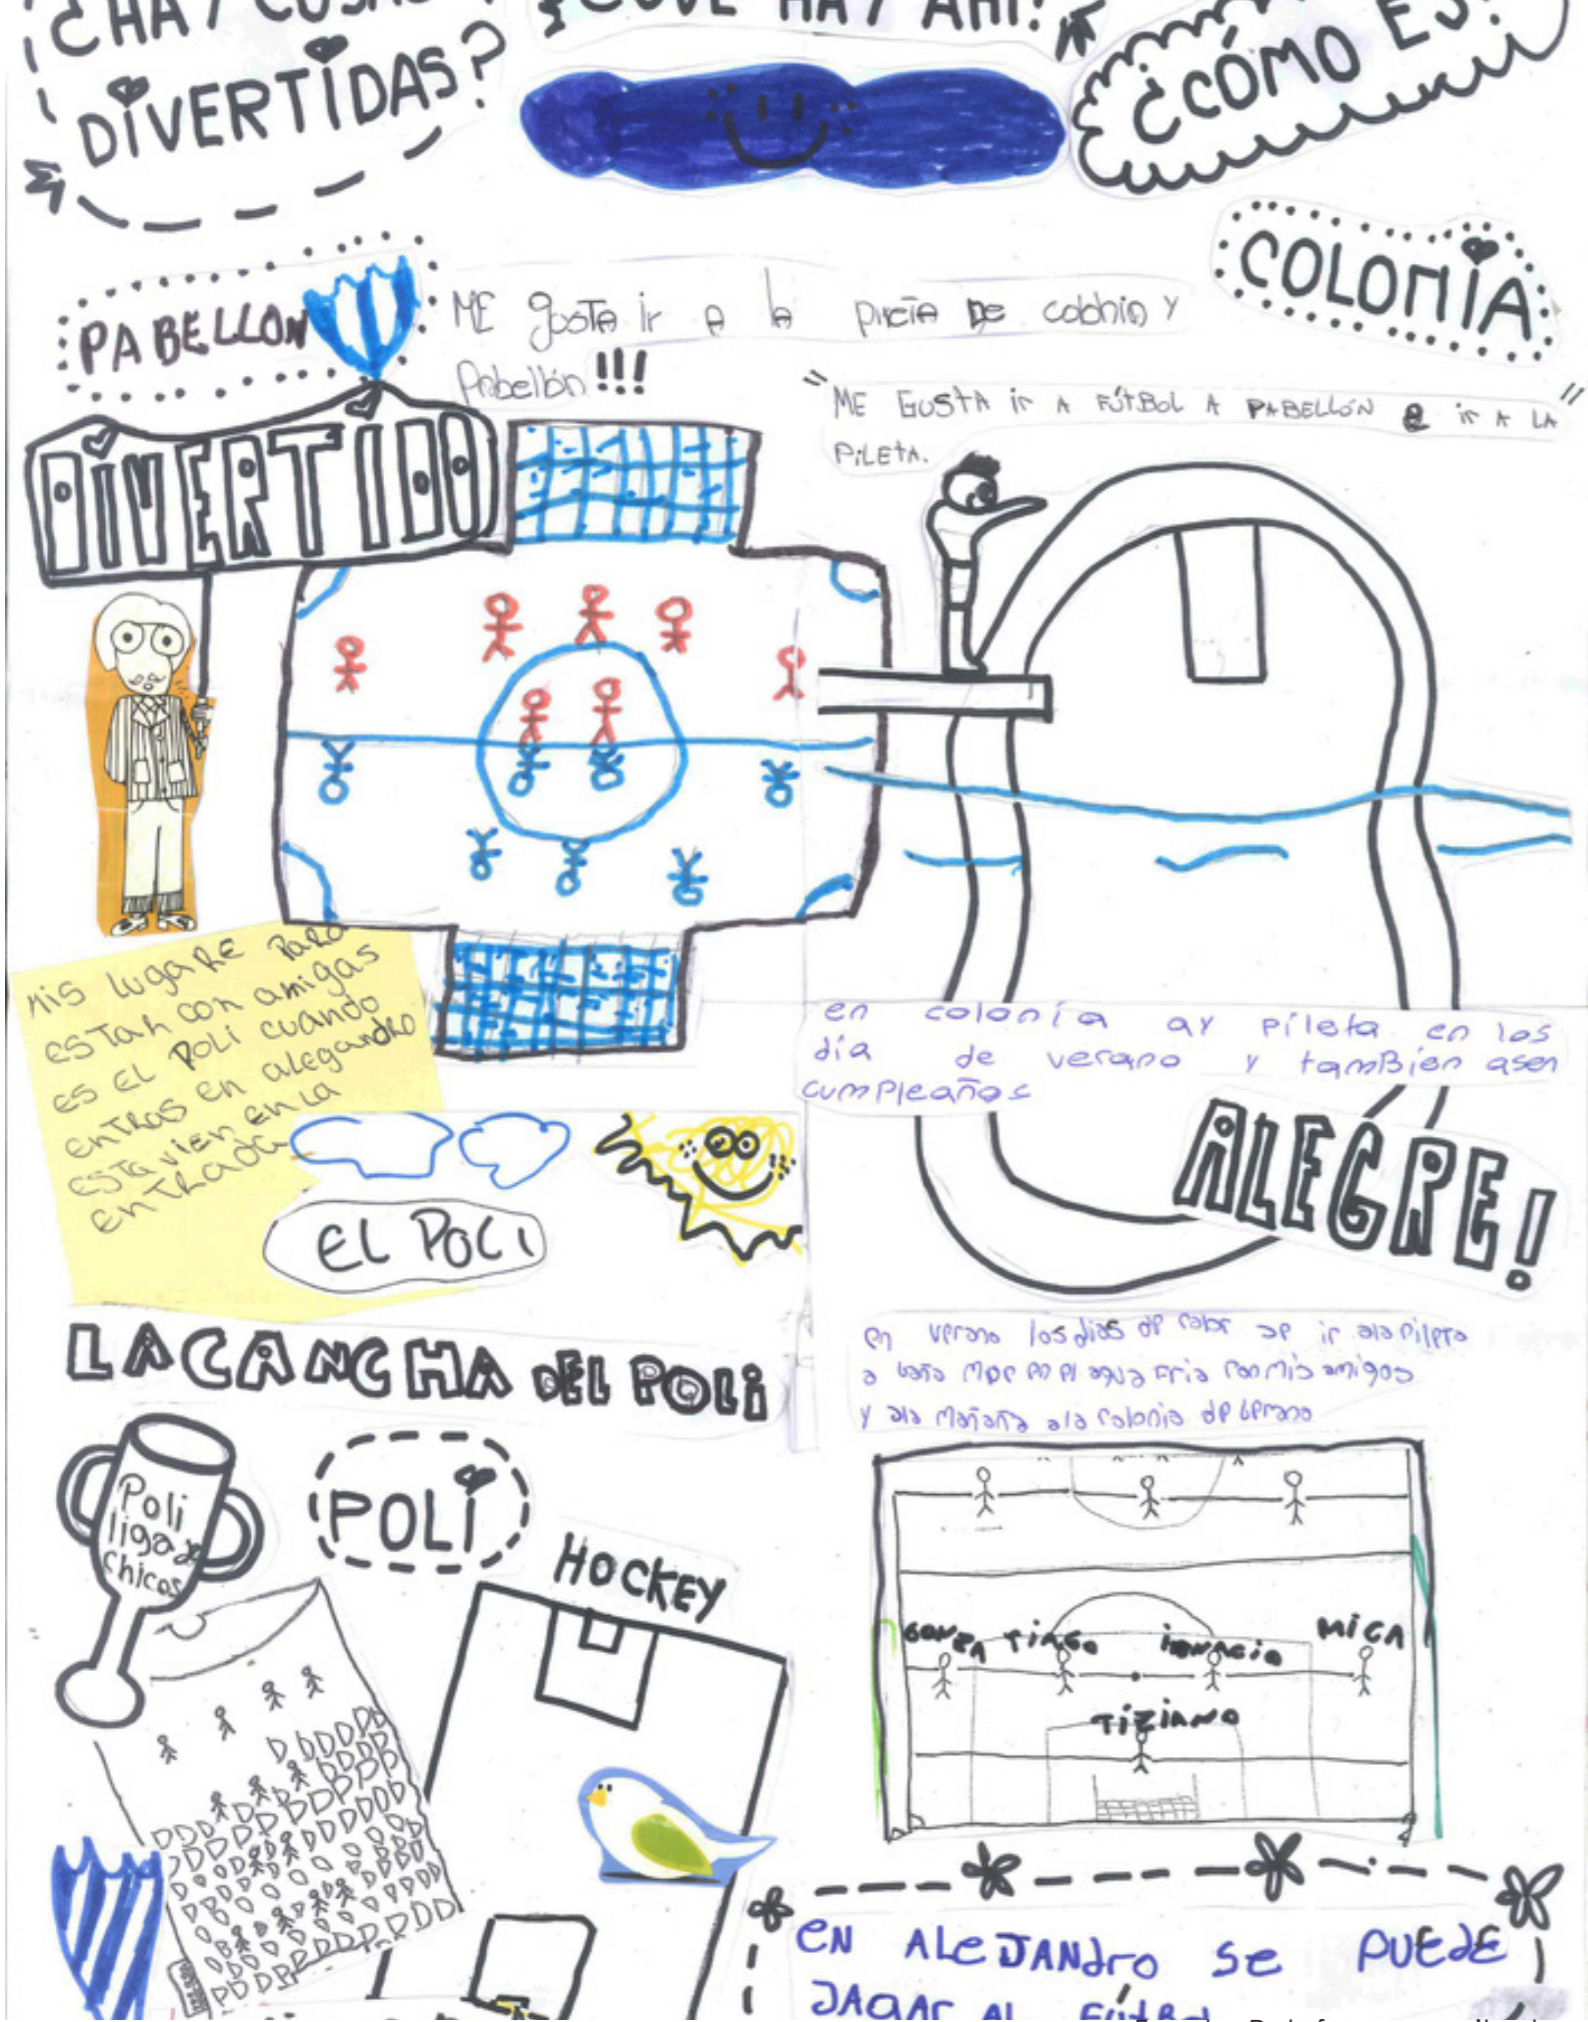 ¿HAY COSAS
DIVERTIDAS?
¿QUÉ HAY AHÍ?
¿CÓMO ES?
PABELLON
ME gusta ir a la pileta de colonia y
Pabellón!!!
COLONIA
"ME GUSTA ir A FÚTBOL A PABELLÓN e ir A LA"
PiLETA.
DIVERTIDO
MIS lugaRE PaRa
ESTAR con amigas
ES EL POLI cuando
EnTRas En alegandro
ESTa viEn En LA
EnTRada
EL POLI
en colonía ay píleta en los
día de verano y tambien asen
cumpleaños
ALEGRE!
LA CANCHA DEL POLI
en verano los dias de calor se ir ala pileta
a baña mos en el agua fria con mis amigos
y ala mañana ala colonia de verano
Poli
liga de
chicos
POLI
HOCKEY
GONZA TIAGO IGNACIO MICA
TIZIANO
EN ALeJANdro Se PUEdE
JAGAR AL FÚtBoL